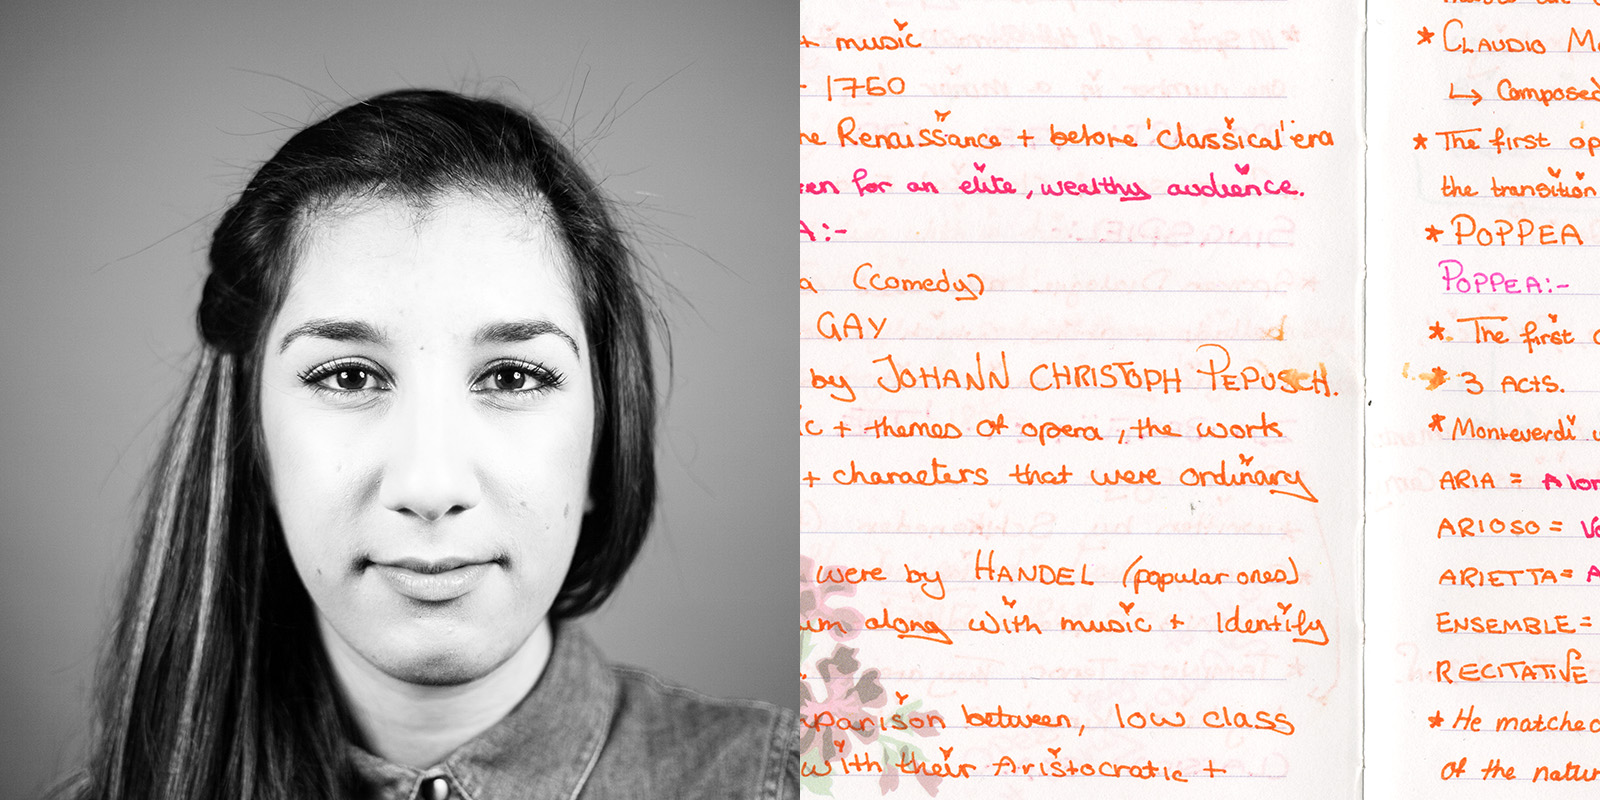 + music
- 1750
Renaissance + before 'classical' era
for an elite, wealthy audience.
A:-
(comedy)
GAY
by JOHANN CHRISTOPH PEPUSCH.
+ themes of opera, the work
+ characters that were ordinary
were by HANDEL (popular ones)
along with music + Identify
between, low class
with their Aristocratic +
* CLAUDIO
↳ Composed
* The first
the transition
* POPPEA
POPPEA:-
* The first
* 3 ACTS.
* Monteverdi
ARIA = A
ARIOSO =
ARIETTA = A
ENSEMBLE =
RECITATIVE
* He matched
of the